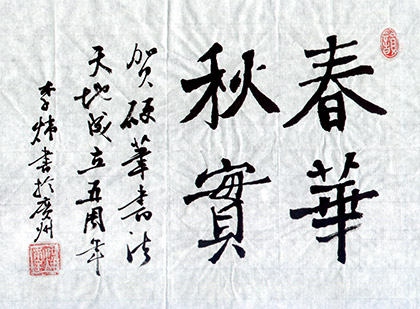 春華
秋實
賀硬筆書法
天地成立五周年
李煒書於廣州